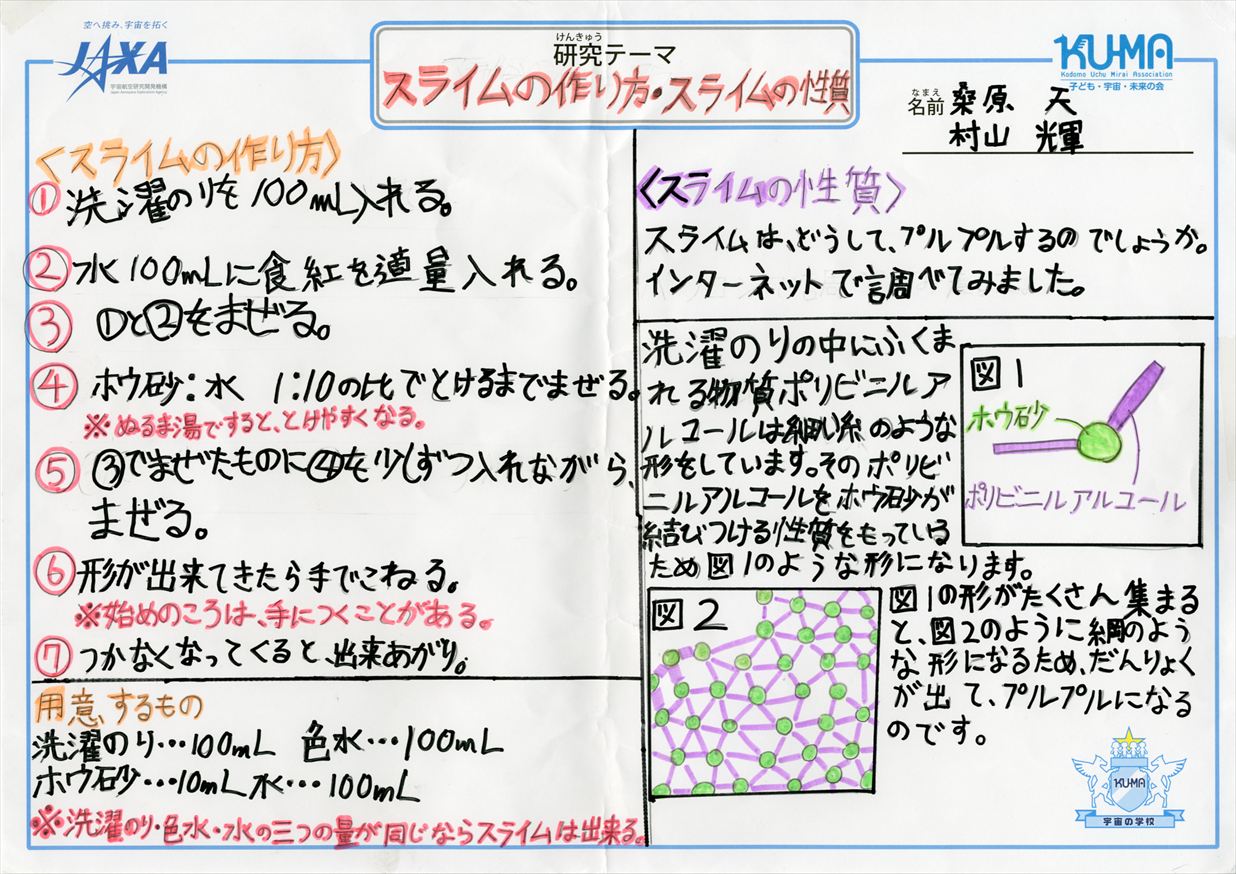 空へ挑み、宇宙を拓く
JAXA
宇宙航空研究開発機構
Japan Aerospace Exploration Agency
けんきゅう
研究テーマ
スライムの作り方・スライムの性質
KU-MA
Kodomo Uchu Mirai Association
子ども・宇宙・未来の会
なまえ
名前 桑原 天
村山 光輝
〈スライムの作り方〉
① 洗濯のりを100mL入れる。
② 水100mLに食紅を適量入れる。
③ ①と②をまぜる。
④ ホウ砂:水 1:10の比でとけるまでまぜる。
※ぬるま湯ですると、とけやすくなる。
⑤ ③でまぜたものに④を少しずつ入れながら、
まぜる。
⑥ 形が出来てきたら手でこねる。
※始めのころは、手につくことがある。
⑦ つかなくなってくると、出来あがり。
用意するもの
洗濯のり…100mL 色水…100mL
ホウ砂…10mL 水…100mL
※洗濯のり・色水・水の三つの量が同じならスライムは出来る。
〈スライムの性質〉
スライムは、どうして、プルプルするのでしょうか。
インターネットで調べてみました。
洗濯のりの中にふくま
れる物質ポリビニルア
ルコールは細い糸のような
形をしています。そのポリビ
ニルアルコールをホウ砂が
結びつける性質をもっている
ため図1のような形になります。
図1
ホウ砂
ポリビニルアルコール
図2
図1の形がたくさん集まる
と、図2のように網のよう
な形になるため、だんりょく
が出て、プルプルになる
のです。
KU-MA
宇宙の学校